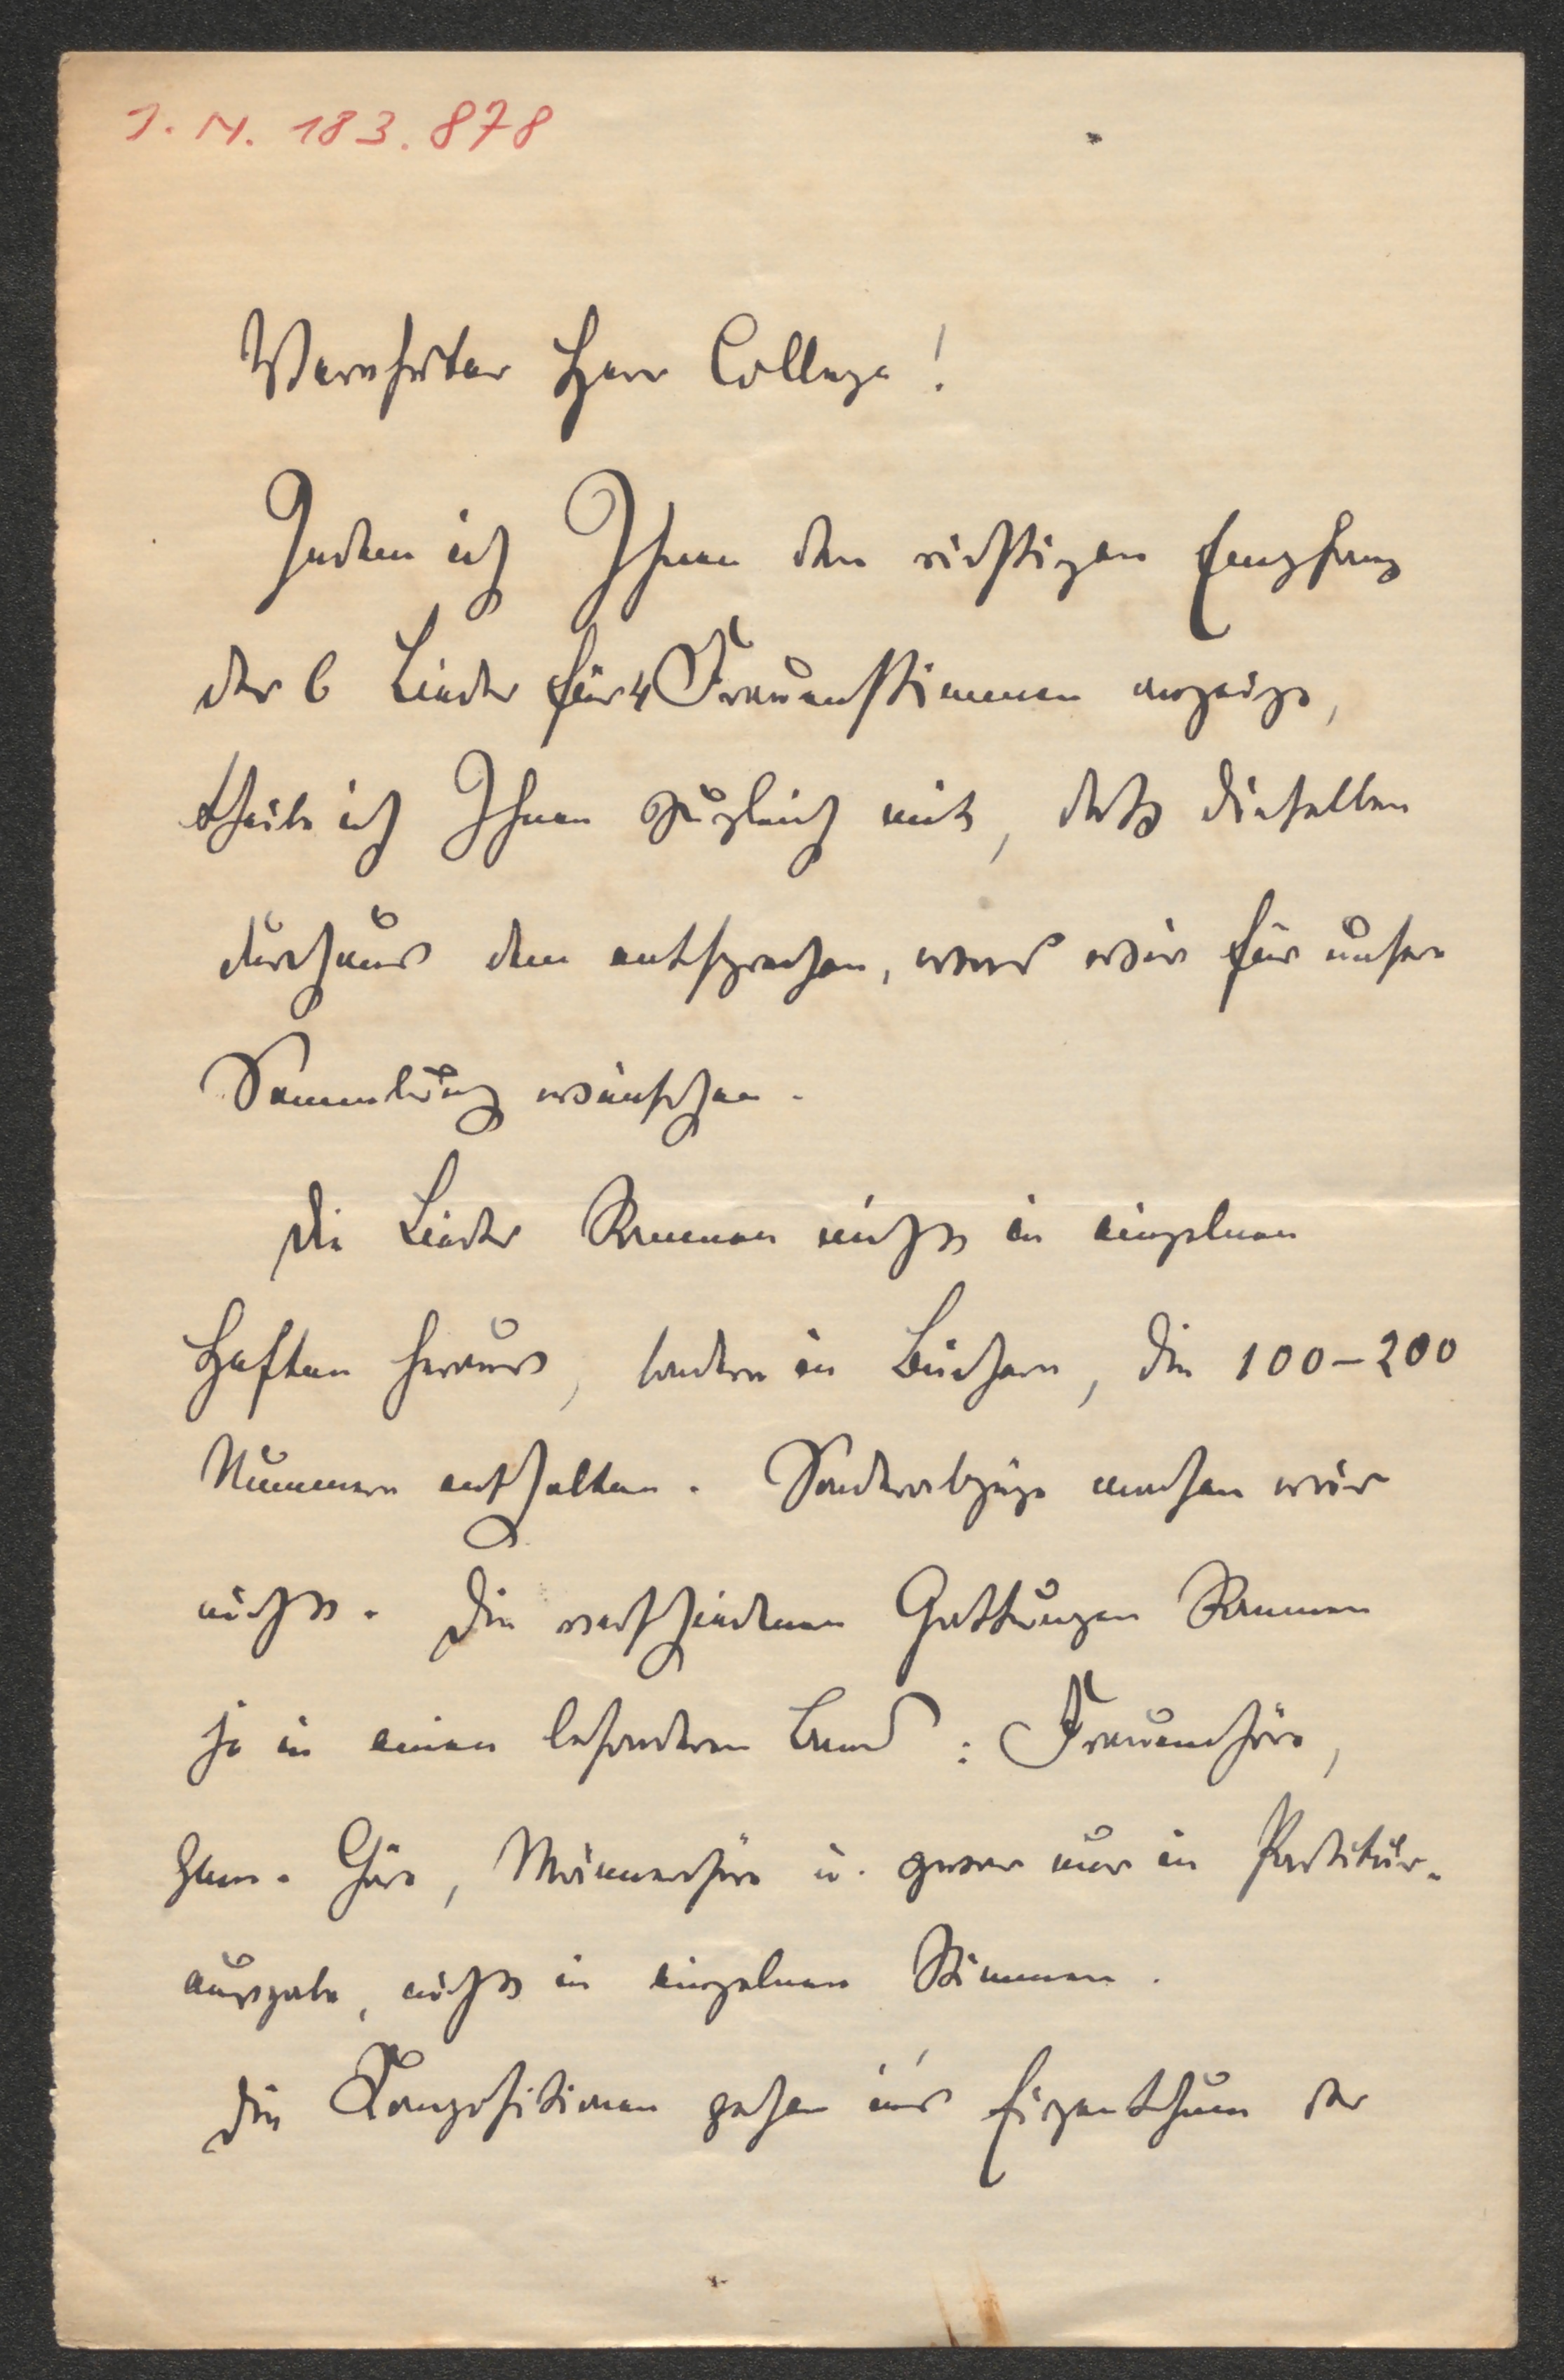 J. N. 183.878
Verehrter Herr College!
Indem ich Ihnen den richtigen Empfang
der 6 Lieder für 4 Frauenstimmen anzeige,
theile ich Ihnen zugleich mit, daß dieselben
durchaus dem entsprechen, was wir für unsere
Sammlung wünschen.
Die Lieder kommen nicht in einzelnen
Heften heraus, sondern in Büchern, die 100–200
Nummern enthalten. Sonderabzüge machen wir
nicht. Die verschiedenen Gattungen kommen
je in einen besonderen Band: Frauenchöre,
Gem. Chöre, Männerchöre u. zwar nur in Partitur-
ausgabe, nicht in einzelnen Stimmen.
Die Kompositionen gehen in's Eigenthum der